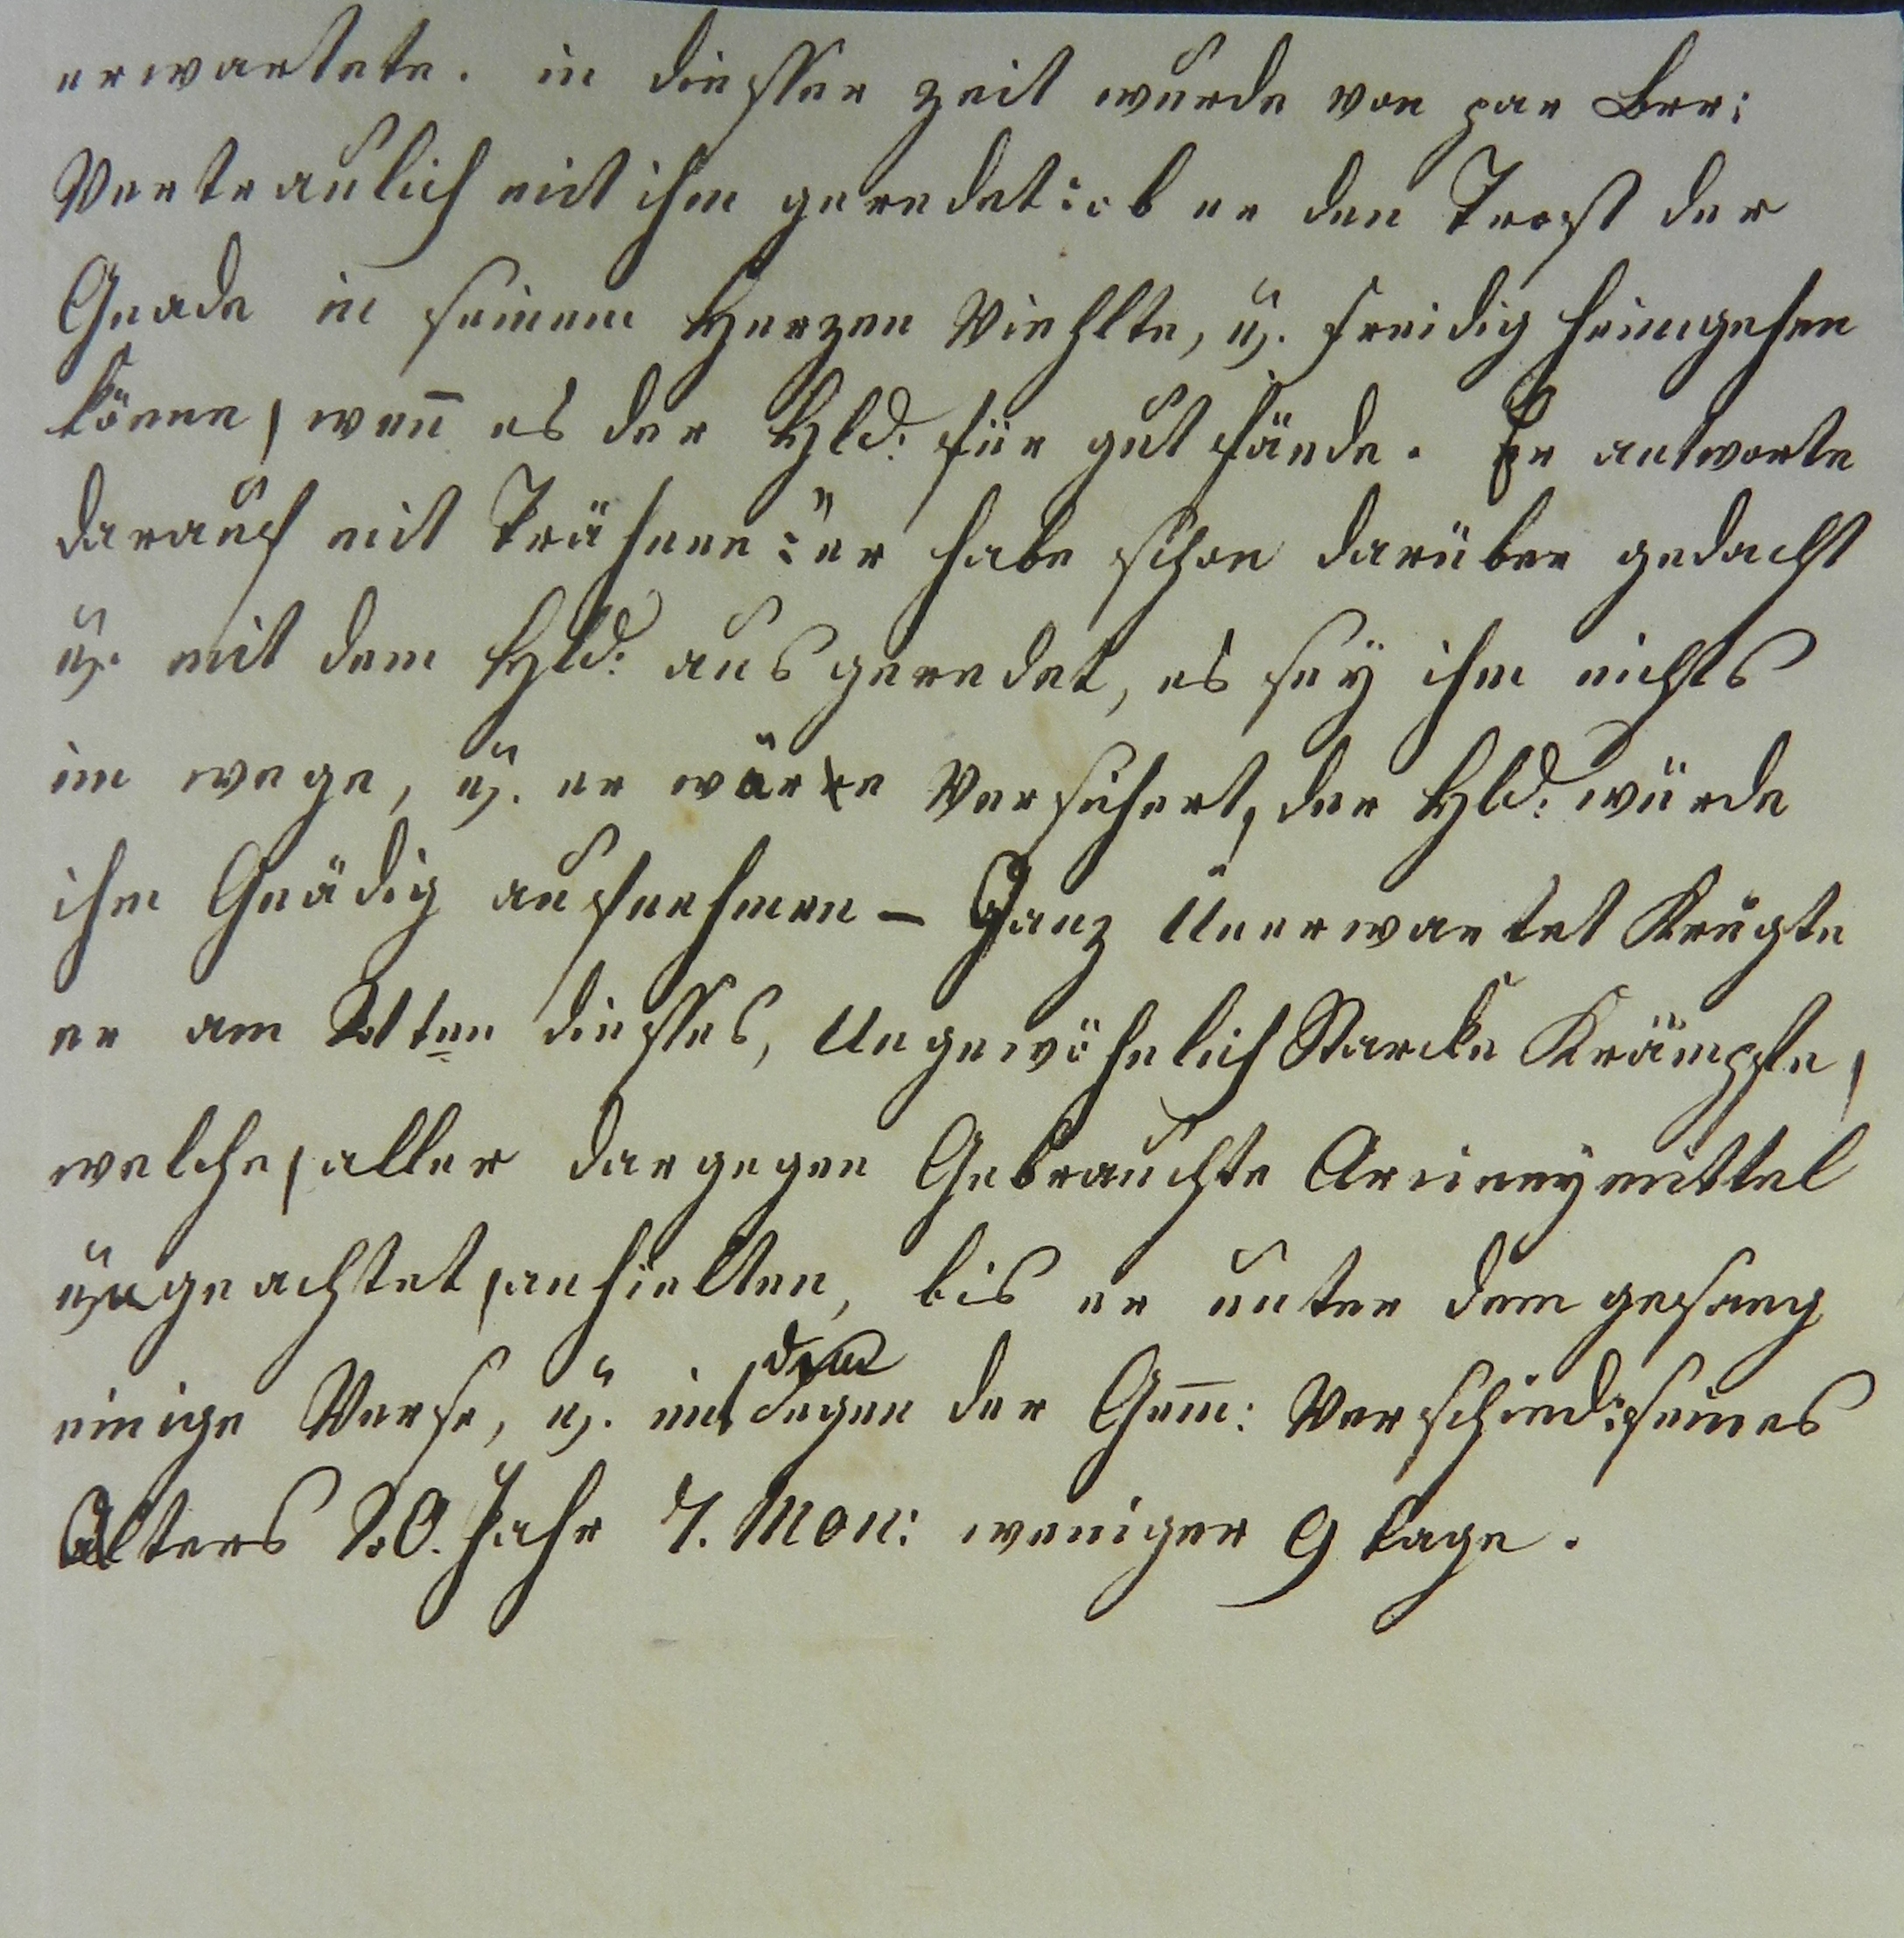 erwartete. in diesser zeit wurde von par Brr:
Vertraulich mit ihm geredet: ob er den Trost der
Gnade in seinem Herzen Viehlte, u. freidig heimgehen
könne, wen̄ es der Hld: für gut fände. Er antworte
darauf mit Trähnen: "er habe schon darüber gedacht
u. mit dem Hld: ausgeredet, es seÿ ihm nichts
im wege, u. er wäre Versichert, der Hld: würde
ihm Gnädig aufnehmen – Ganz Unerwartet Krigte
er am ten diesses, Ungewöhnlich Starcke Krämpfe,
welche, aller dargegen Gebrauchte Arzneÿmittel
ungeachtet, anhielten, bis er unter dem gesang
einige Verse, u. dem
Segen der Gem̄: Verschied: seines
Alters 20. Jahr 7. Mon: weniger 9 tage.